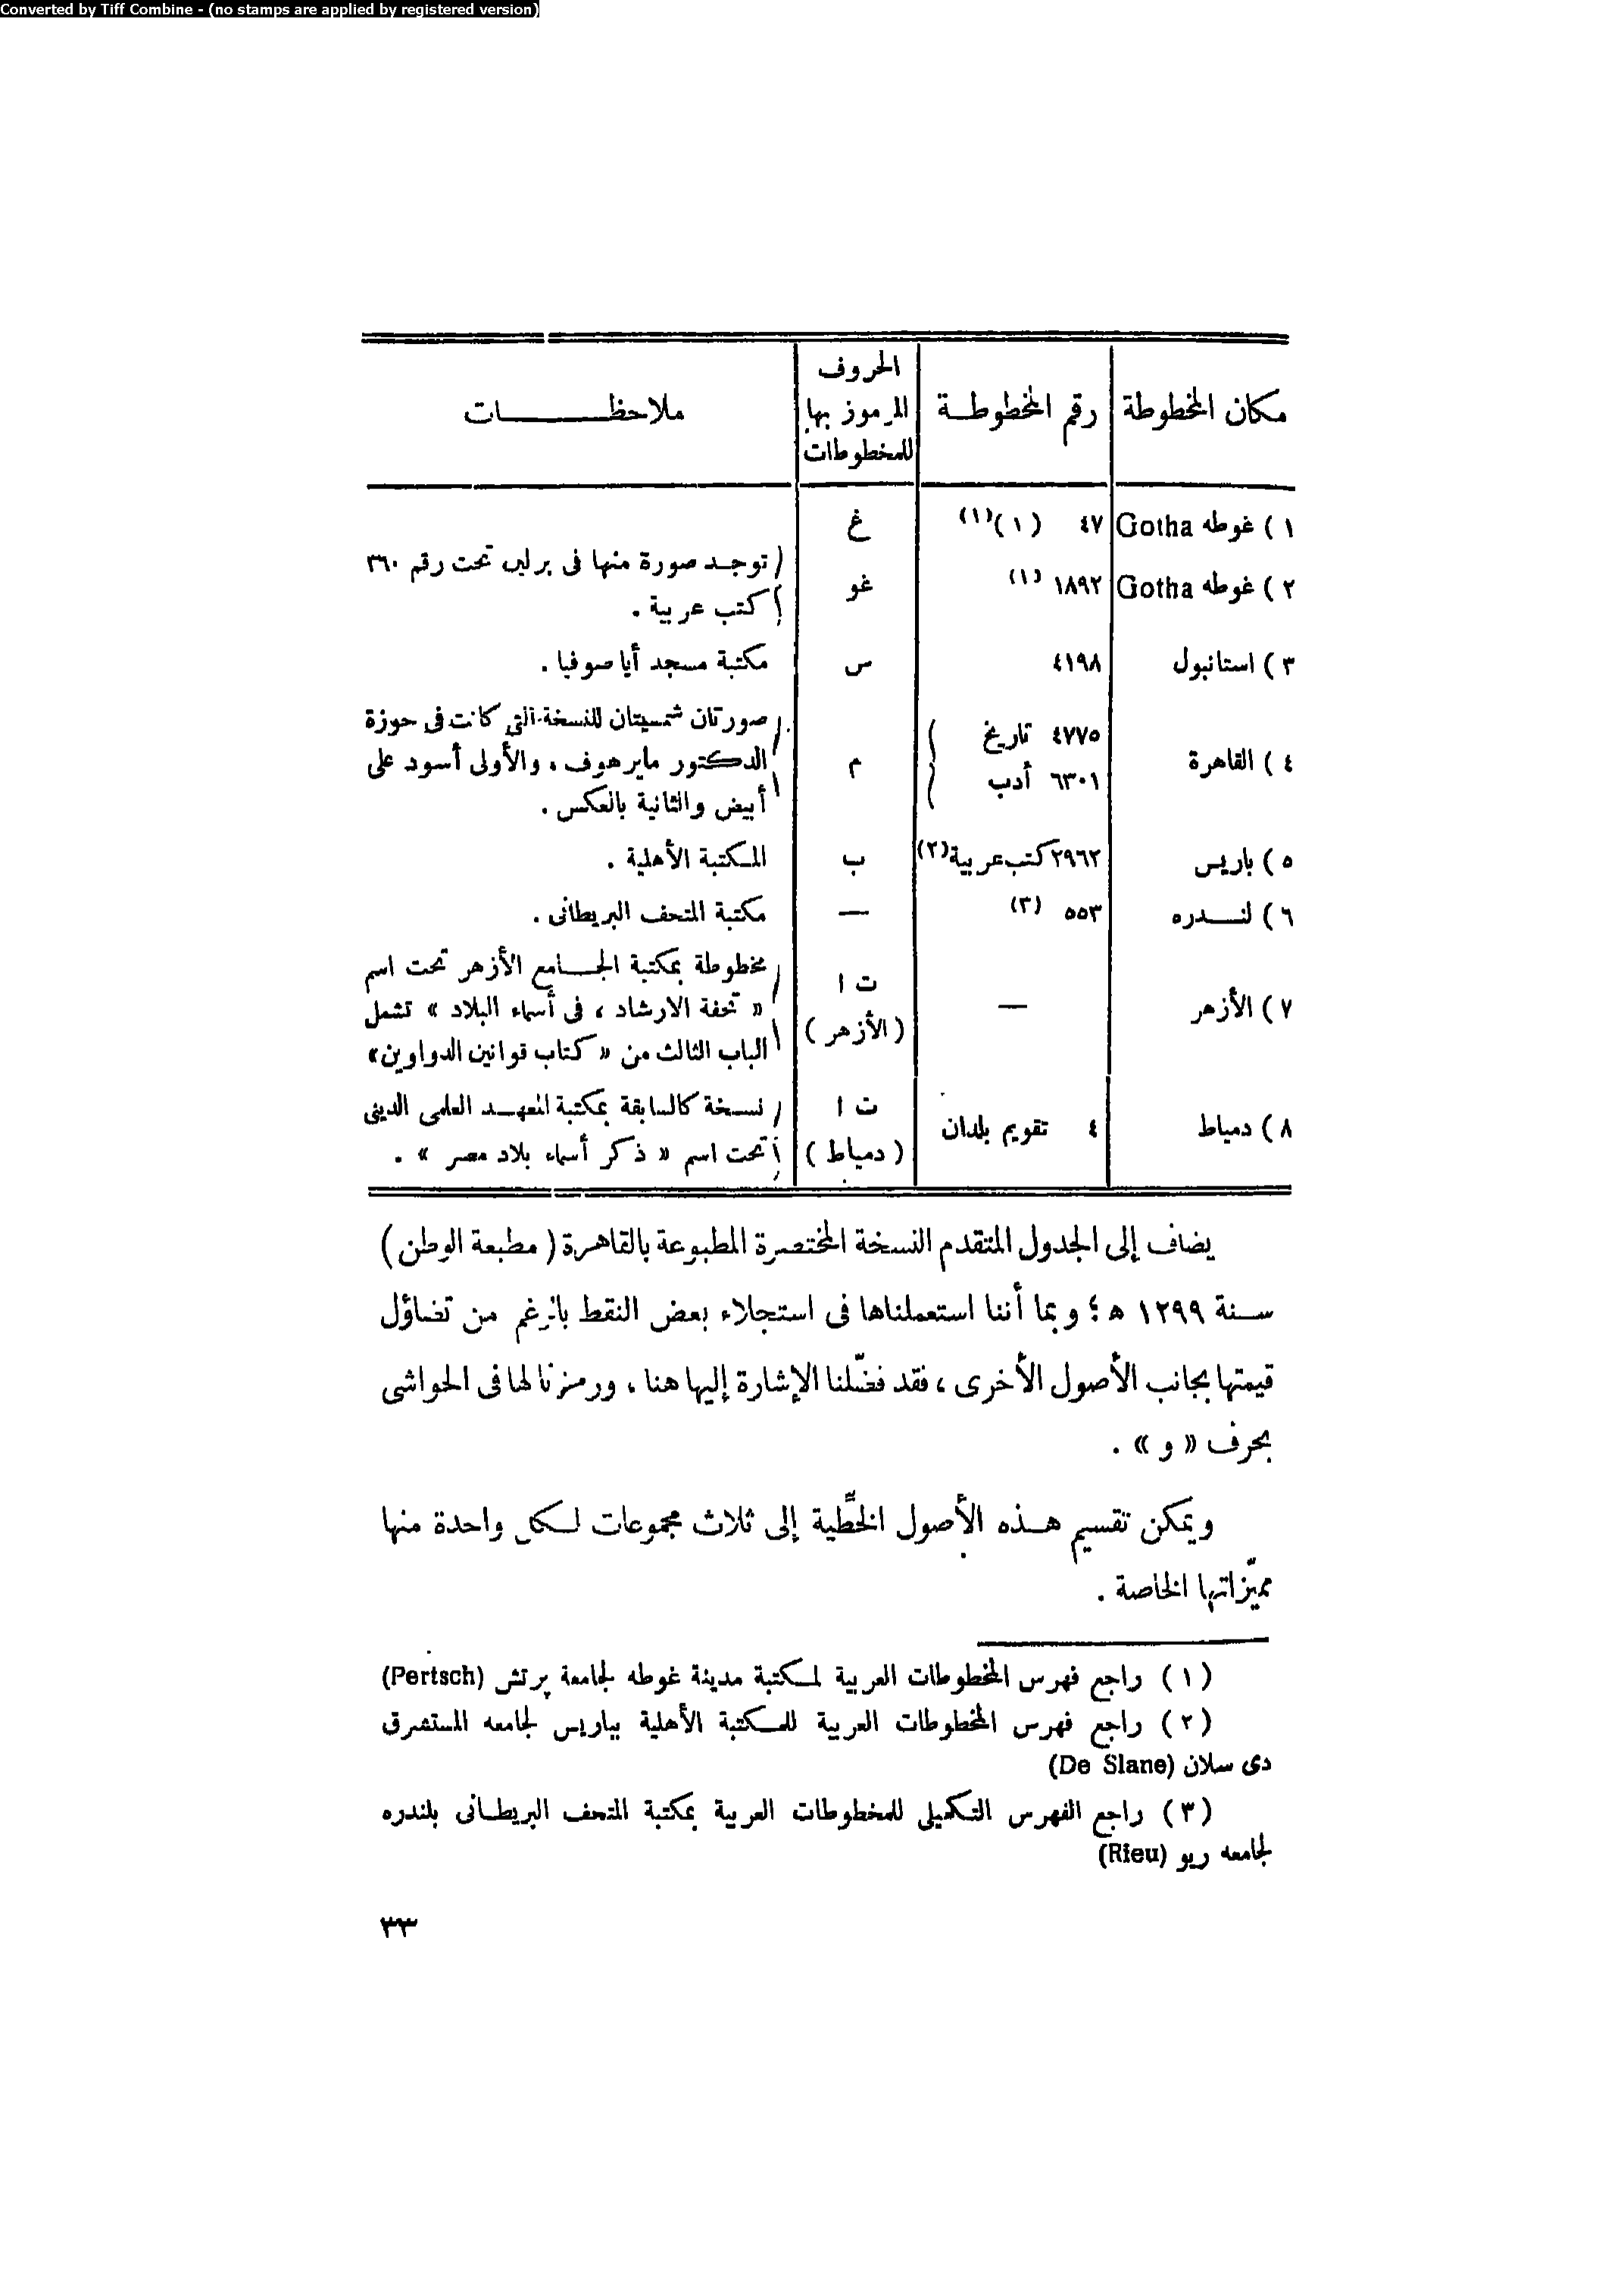 Converted by Tiff Combine - (no stamps are applied by registered version)
مكان المخطوطة | رقم المخطوطة | الحروف المرموز بها للمخطوطات | ملاحظات
١ ) غوطه Gotha | ٤٧ (١)(١) | غ
٢ ) غوطه Gotha | ١٨٩٢ (١) | غو | توجد صورة منها فى برلين تحت رقم ٣٦٠
كتب عربية .
٣ ) استانبول | ٤١٩٨ | س | مكتبة مسجد أيا صوفيا .
٤ ) القاهرة | ٤٧٧٥ تاريخ | م | صورتان شمسيتان للنسخة التى كانت فى حوزة
٦٣٠١ أدب | الدكتور مايرهوف ، والأولى أسود على
أبيض والثانية بالعكس .
٥ ) باريس | ٢٩٦٢ كتب عربية (٢) | ب | المكتبة الأهلية .
٦ ) لندره | ٥٥٣ (٣) | — | مكتبة المتحف البريطانى .
٧ ) الأزهر | — | ت ا | مخطوطة بمكتبة الجامع الأزهر تحت اسم
( الأزهر ) | « تحفة الارشاد ، فى أسماء البلاد » تشمل
الباب الثالث من « كتاب قوانين الدواوين »
٨ ) دمياط | ٤ تقويم بلدان | ت ا | نسخة كالسابقة بمكتبة المعهد العلمى الدينى
( دمياط ) | تحت اسم « ذكر أسماء بلاد مصر » .
يضاف إلى الجدول المتقدم النسخة المختصرة المطبوعة بالقاهرة ( مطبعة الوطن )
سنة ١٢٩٩ ه ؛ و بما أننا استعملناها فى استجلاء بعض النقط بالرغم من تضاؤل
قيمتها بجانب الأصول الأخرى ، فقد فضّلنا الإشارة إليها هنا ، ورمزنا لها فى الحواشى
بحرف « و » .
ويمكن تقسيم هذه الأصول الخطِّية إلى ثلاث مجموعات لكل واحدة منها
مميّزاتها الخاصة .
( ١ ) راجع فهرس المخطوطات العربية لمكتبة مدينة غوطه لجامعة پرتش (Pertsch)
( ٢ ) راجع فهرس المخطوطات العربية للمكتبة الأهلية بباريس لجامعه المستشرق
دى سلان (De Slane)
( ٣ ) راجع الفهرس التكميلى للمخطوطات العربية بمكتبة المتحف البريطانى بلندره
لجامعه ريو (Rieu)
٣٣